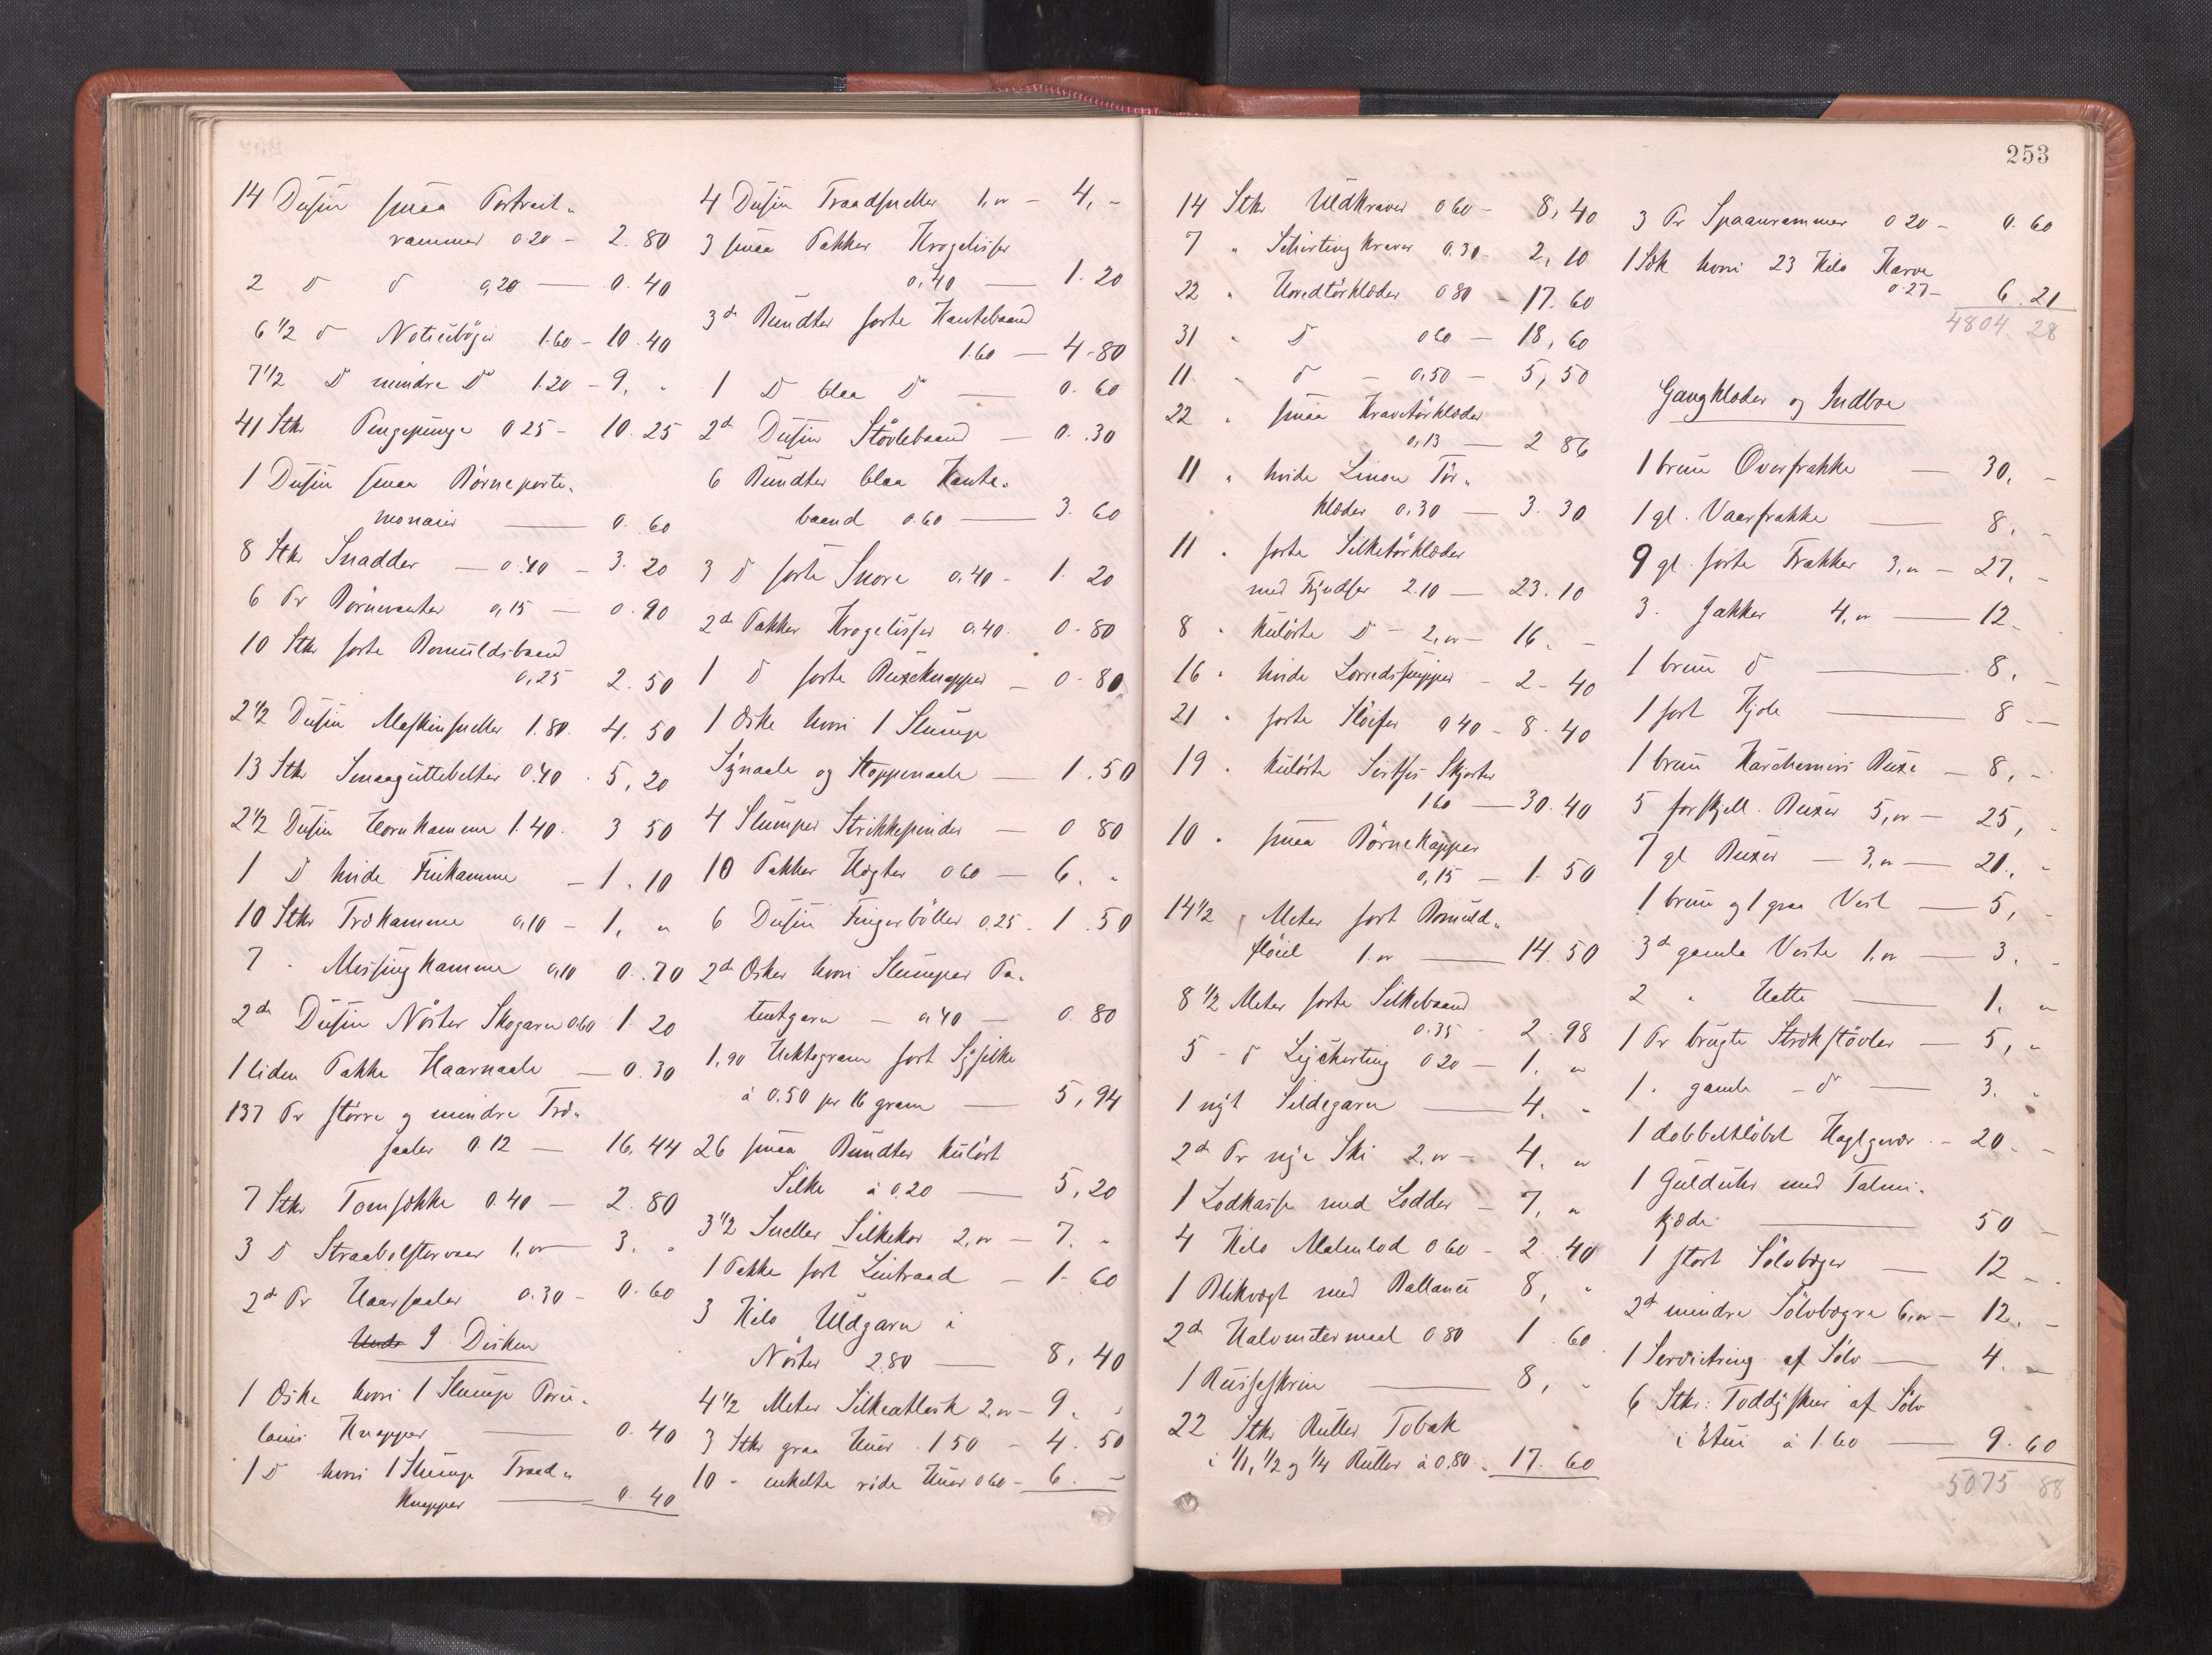 14 Dusin smaa Portrait-
rammer 0.20 - 2.80
2 D D 0,20 — 0.40
6 1/2 D Notitsbøger 1.60 - 10.40
7 1/2 D mindre D 1.20 - 9, "
41 Stkr Pengepunge 0.25 - 10.25
1 Dusin smaa Børneporte-
monaier — 0.60
8 Stkr Snadder — 0.40 - 3.20
6 Pr Børnevanter 0,15 — 0.90
10 Stkr sorte Bomuldsbaand
0,25 2.50
2 1/2 Dusin Maskinsneller 1.80. 4.50
13 Stkr Smaaguttebelter 0.40 - 5,20
2 1/2 Dusin Hornkamme 1.40. 3 50
1 D hvide Finkamme - 1.10
10 Stkr Trækamme 0,10 - 1, "
7 " Messingkamme 0,10 0.70
2de Dusin Nøster Skogarn 0.60 1.20
1 liden Pakke Haarnaale — 0.30
137 Pr større og mindre Træ-
saaler 0.12 — 16,44
7 Stkr Tomsække 0.40 — 2.80
3 D Straabolstervaar 1,00 — 3. "
2de Pr Haarsaaler 0.30 - 0.60
I Disken
1 Øske hvori 1 Slump Porce-
lains Knapper — 0.40
1 D hvori 1 Slump Traad-
knapper — 0.40
4 Dusin Traadsneller 1,00 - 4, -
3 smaa Pakker Krogelisser
0,40 — 1.20
3de Bundter sorte Kantebaand
1.60 — 4.80
1 D blaa D — 0.60
2de Dusin Støvlebaand — 0.30
6 Bundter blaa Kante-
baand 0.60 — 3.60
3 D sorte Snore 0,40 - 1.20
2de Pakker Krogelisser 0,40. 0.80
1 D sorte Buxeknapper - 0.80
1 Øske hvori 1 Slump
Synaale og Stoppenaale — 1.50
4 Slumper Strikkepinder — 0 80
10 Pakker Hægter 0.60 — 6. "
6 Dusin Fingerbøller 0.25. 1.50
2de Øsker hvori Slumper Pa-
tentgarn — 0,40 — 0.80
1,90 Hektogram sort Sysilke
á 0.50 pr 16 gram — 5,94
26 smaa Bundter kulørt
Silke á 0.20 — 5,20
3 1/2 Sneller Silkekor 2,00 — 7. "
1 Pakke sort Lintraad — 1.60
3 Kilo Uldgarn i
Nøster 2.80 — 8,40
4 1/2 Meter Silkeatlask 2,00 - 9. "
3 Stkr graa Huer 1.50 - 4.50
10 " enkelte røde Huer 0.60 - 6. -
253
14 Stkr Uldkraver 0.60 - 8,40
7 " Schirting kraver 0.30 - 2,10
22 " Hovedtørklæder 0.80 - 17.60
31 " D 0.60 — 18,60
11 " D - 0,50 - 5,50
22 " smaa Kravetørklæder
0,13 — 2 86
11 " hvide Linon Tør-
klæder 0,30 — 3.30
11 " sorte Silketørklæder
med Fryndser 2.10 — 23.10
8 " kulørte D - 2,00 - 16. -
16 " hvide - 2.40
21 " sorte Sløifer 0.40 - 8.40
19 " kulørte Sirtses Skjorter
1.60 — 30.40
10 " smaa Børnekapper
0,15 — 1.50
14 1/2 " Meter sort Bomuld-
fløiel 1.00 — 14.50
8 1/2 Meter sorte Silkebaand
0.35 - 2.98
5 - D 0.20 — 1, "
1 nyt Sildegarn — 4. "
2de Pr nye Ski 2,00 - 4. "
1 Lodkasse med Lodder — 7, "
4 Kilo Malmlod 0.60 - 2.40
1 Blikvægt med Ballance 8, "
2de Halvmetermaal 0.80 1.60
1 Reiseskrin — 8, "
22 Stkr Ruller Tobak
i 1/1, 1/2 og 1/4 Ruller á 0,80 - 17.60
3 Pr Spaanrammer 0.20 - 0.60
1 Sæk hvori 23 Kilo Karve
0.27 - 6.21
4804 28
Gangklæder og Indbo
1 brun Overfrakke — 30, -
1 gl. Vaarfrakke — 8, -
9 gl. sorte Frakker 3,00 - 27, -
3. Jakker 4,00 — 12 -
1 brun D — 8, -
1 sort Kjole — 8 -
1 brun Buxe - 8, -
5 forskjell. Buxer 5,00 — 25, -
7 gl Buxer — 3,00 — 21, "
1 brun og 1 graa Vest — 5, -
3de gamle Veste 1,00 — 3. -
2 " Hatte — 1. "
1 Pr brugte Skrokstøvler — 5, "
1. gamle - D — 3. "
1 dobbeltløbet Haglgevær - 20. -
1 Guldur med Talmi-
kjæde — 50 -
1 stort Sølvbæger — 12 -
2de mindre Sølvbægre 6,00 - 12. -
1 Serviétring af Sølv — 4. -
6 Stkr: Toddyskeer af Sølv
i Etui á 1.60 — 9.60
5075 88